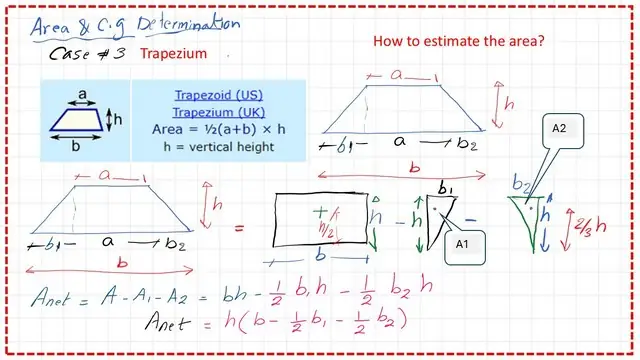 Area & C.g Determination
Case #3 Trapezium
How to estimate the area?
a
h
b
Trapezoid (US)
Trapezium (UK)
Area = ½(a+b) × h
h = vertical height
a
h
b1 a b2
b
A2
a
h
b1 a b2
b
=
h/2
h
b
-
h
b1
A1
-
b2
h
2/3 h
Anet = A - A1 - A2 = bh - 1/2 b1 h - 1/2 b2 h
Anet = h(b - 1/2 b1 - 1/2 b2)